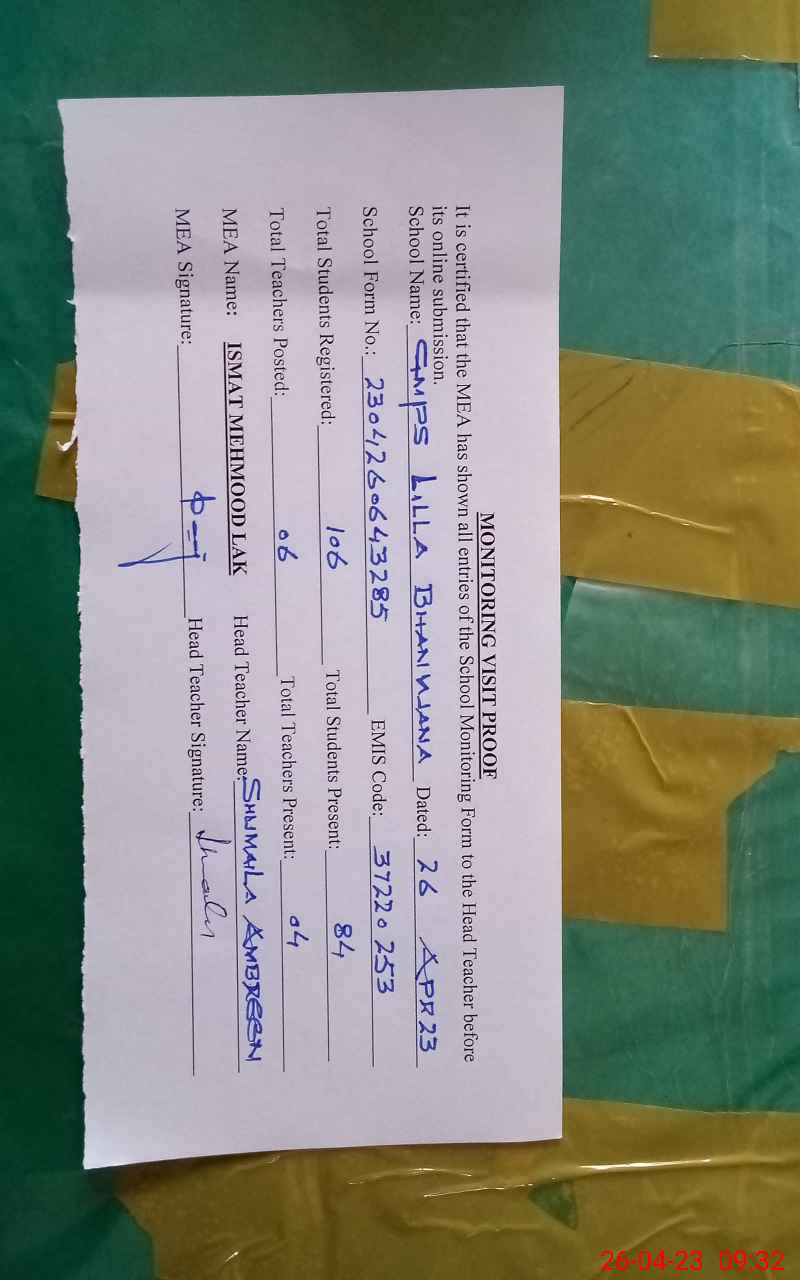 MONITORING VISIT PROOF
It is certified that the MEA has shown all entries of the School Monitoring Form to the Head Teacher before
its online submission.
School Name: GMPS LILLA BHANWANA Dated: 26 APR 23
School Form No.: 2304260643285 EMIS Code: 37220253
Total Students Registered: 106 Total Students Present: 84
Total Teachers Posted: 06 Total Teachers Present: 04
MEA Name: ISMAT MEHMOOD LAK Head Teacher Name: SHUMAILA AMBREEN
MEA Signature: Head Teacher Signature:
26-04-23 09:32